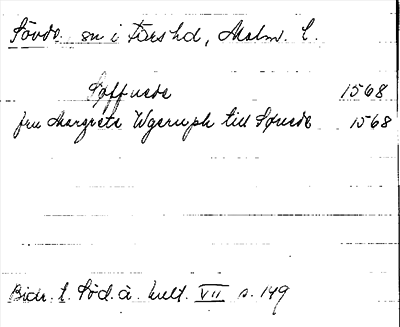 Sövde. sn i Färs hd, Malm. L.
Søffuede 1568
fru Margrete Ugerups till Søuede 1568
Bidr. t. Söd. å. kult. VII s. 149